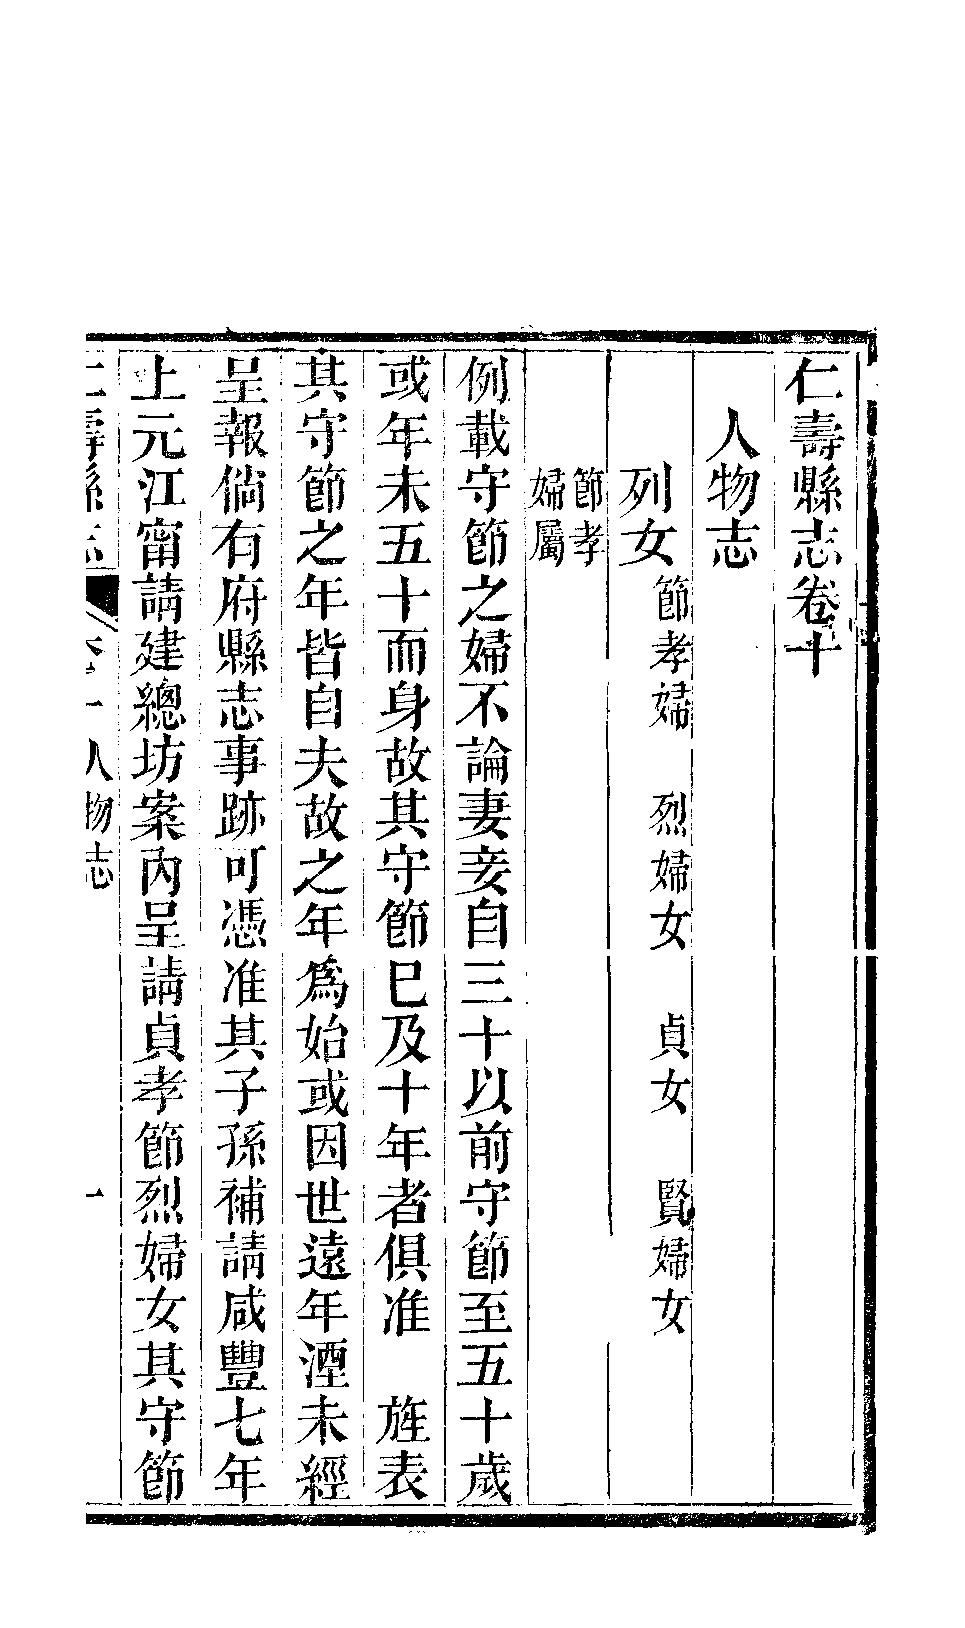 仁壽縣志卷十
人物志
列女 節孝婦 烈婦女 貞女 賢婦女
節孝
婦屬
例載守節之婦不論妻妾自三十以前守節至五十歲
或年未五十而身故其守節已及十年者俱准 旌表
其守節之年皆自夫故之年爲始或因世遠年湮未經
呈報倘有府縣志事跡可憑准其子孫補請咸豐七年
上元江甯請建總坊案內呈請貞孝節烈婦女其守節
仁壽縣志 卷十人物志 一